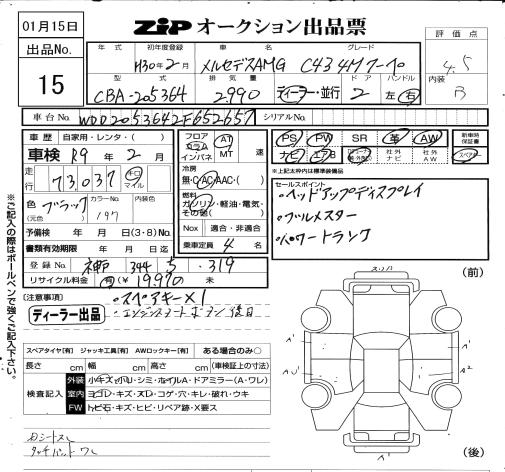 01月15日
ZIP オークション出品票
出品No.
15
評価点
4.5
内装
B
年式 初年度登録 車名 グレード
H30年2月 メルセデスAMG C43 4M クーペ
型式 排気量 ディーラー・並行 ドア ハンドル
CBA-205364 2,990 2 左 右
車台No. WDD2053642F652657 シリアルNo.
車歴 自家用・レンタ・( )
車検 R9年2月
走行 73,037 キロ マイル
色 (元色) ブラック カラーNo. 197 内装色
予備検 年 月 日(3・8)No.
書類有効期限 年 月 日迄
登録No. 神戸 344 319
リサイクル料金 有(¥ )
フロア コラム インパネ AT MT 速
冷房 無・C・AC・AAC・( )
燃料 ガソリン・軽油・電気・その他( )
Nox 適合・非適合
乗車定員 4 名
PS PW SR 革 AW 新車時保証書
ナビ エアB 社外ナビ 社外AW スペアキー
※上記太枠内は標準装備品
セールスポイント
・ヘッドアップディスプレイ
・ブルメスター
・パワートランク
[注意事項]
ディーラー出品
・スペアキー×1
※ご記入の際はボールペンで強くご記入下さい。
スペアタイヤ[有] ジャッキ工具[有] AWロックキー[有] ある場合のみ○
長さ cm 幅 cm 高さ cm (車検証上の寸法)
検査記入
外装 小キズ・小凹・シミ・ホイルA・ドアミラー(A・ワレ)
室内 ヨゴレ・キズ・スレ・コゲ・穴・キレ・破れ・ウキ
FW トビ石・キズ・ヒビ・リペア跡・X要ス
(前)
A2
(後)